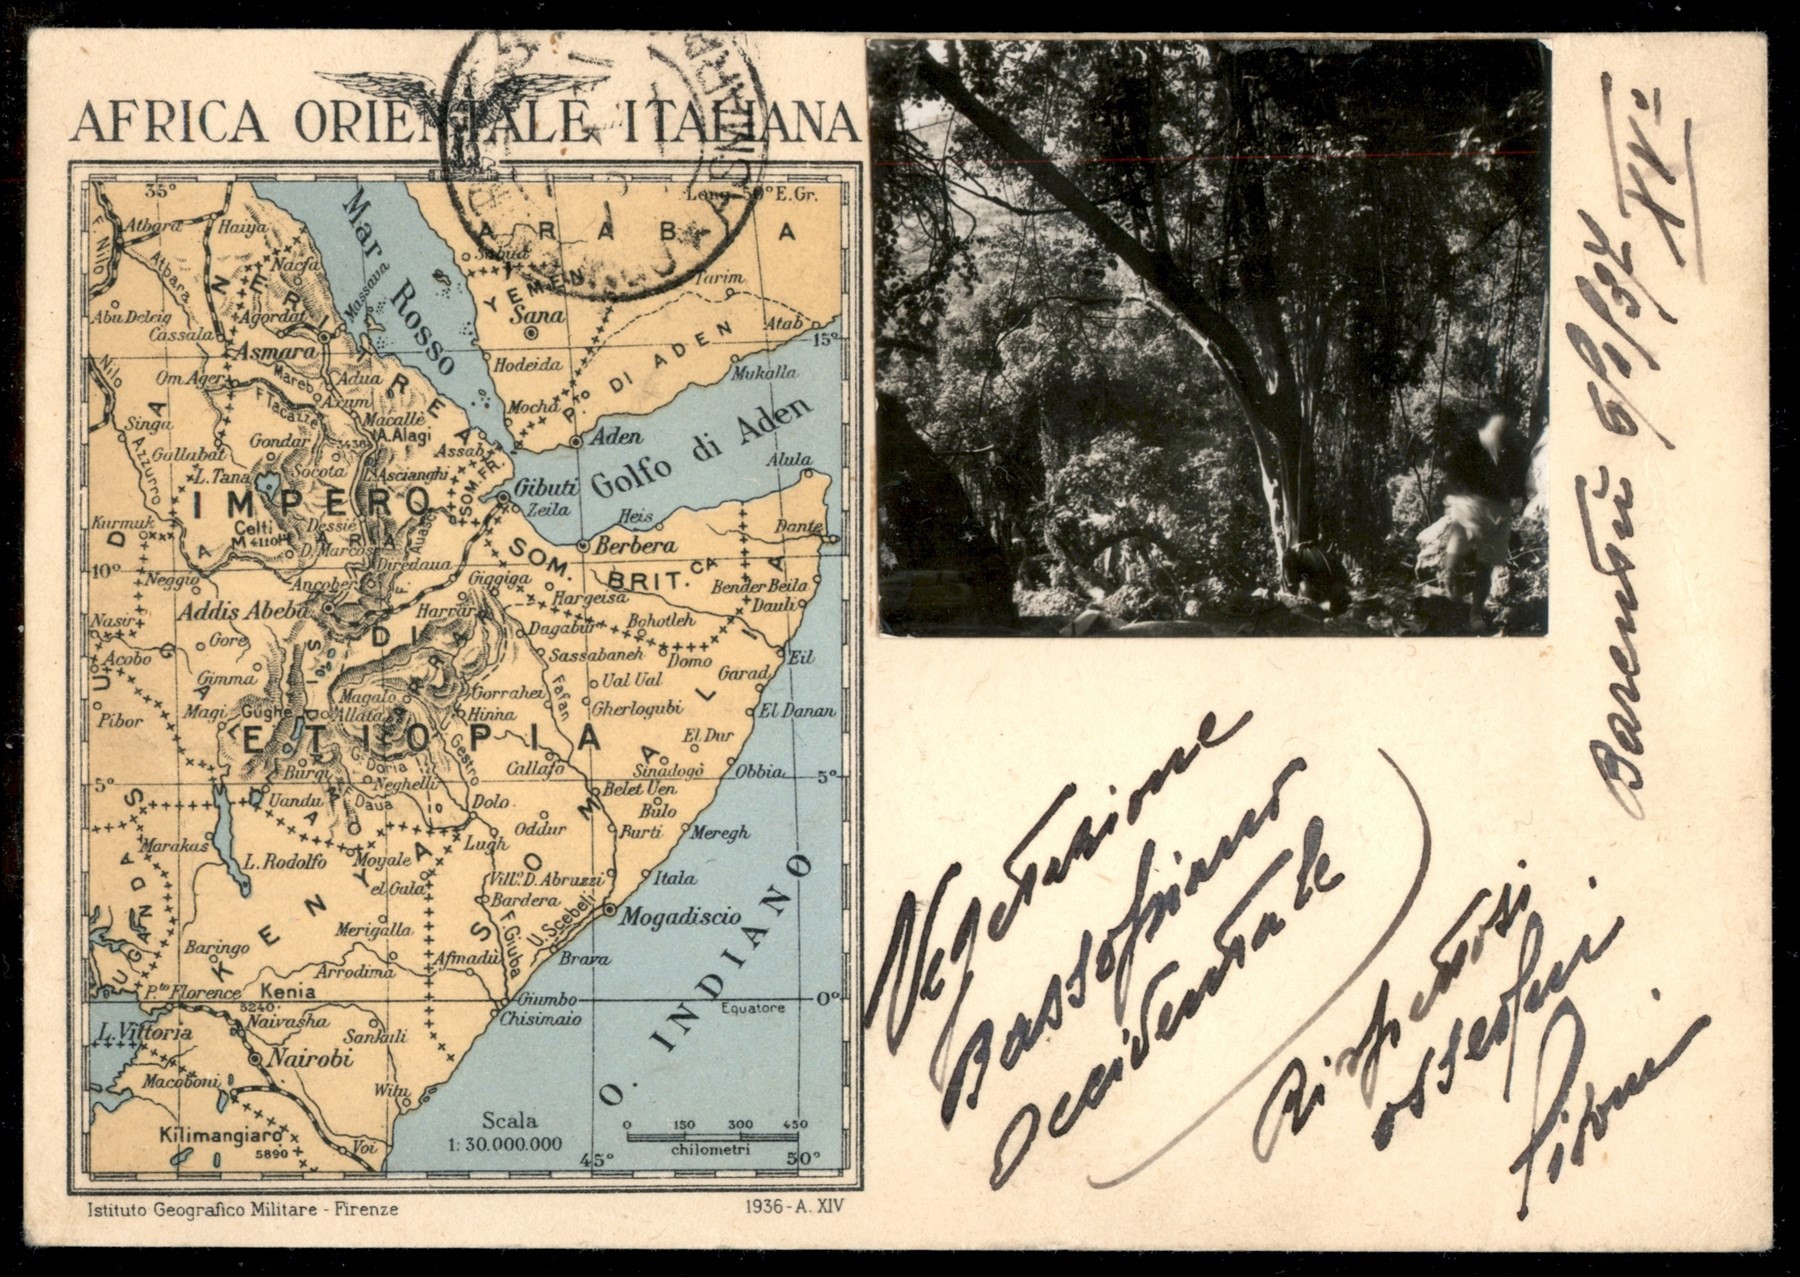 AFRICA ORIENTALE ITALIANA
35°
Long. 50° E. Gr.
F. Nilo
Atbara
Haiya
Mar Rosso
ARABIA
Atbara
Nacfa
Massaua
Sabia
YEMEN
Tarim
Abu Deleig
Agordat
Sana
Atab
Cassala
Asmara
ERITREA
Hodeida
P.to DI ADEN
15°
Nilo
Om Ager
Mareb
Adua
Mukalla
F. Tacazzè
Axum
Mocha
Singa
Macallè
Gondar
A. Alagi
Assab
Aden
Golfo di Aden
Gallabat
Azzurro
L. Tana
Socota
L. Ascianghi
SOM. FR.
Gibuti
Alula
IMPERO
Zeila
Heis
Kurmuk
Celti
M 4110
Dessiè
D. Marcos
Berbera
Dante
10°
Neggio
Ancober
Diredaua
Giggiga
SOM. BRIT.CA
Bender Beila
Addis Abeba
Harrar
Hargeisa
Dauli
Nasir
Gore
DI
Dagabur
Bohotleh
Acobo
Sassabaneh
Domo
Eil
Gimma
Ual Ual
Garad
Magalo
Gorrahei
Fafan
Pibor
Magi
Gughe
Allata
Hinna
Gherlogubi
El Danan
ETIOPIA
El Dur
G. Doria
U. Gestro
Burgi
Neghelli
Callafo
Sinadogò
Obbia
5°
5°
Uandu
Daua
Dolo
Belet Uen
Bulo
Oddur
Burti
Meregh
Marakas
Lugh
L. Rodolfo
Moyale
SOMALIA
el Gula
Vill.o D. Abruzzi
Itala
UGANDA
Bardera
Mogadiscio
KENYA
U. Scebeli
F. Giuba
Baringo
Merigalla
Arrodima
Afmadù
Brava
P.to Florence
Kenia
5240
Giumbo
Equatore
0°
L. Vittoria
Naivasha
Chisimaio
Sankuli
Nairobi
O. INDIANO
Macoboni
Witu
Kilimangiaro
5890
Voi
Scala
1: 30.000.000
0 150 300 450
chilometri
45°
50°
Istituto Geografico Militare - Firenze
1936 - A. XIV
Barentù 6/6/37
XV°
Vegetazione
Bassopiano
Occidentale
Rispettosi
ossequi